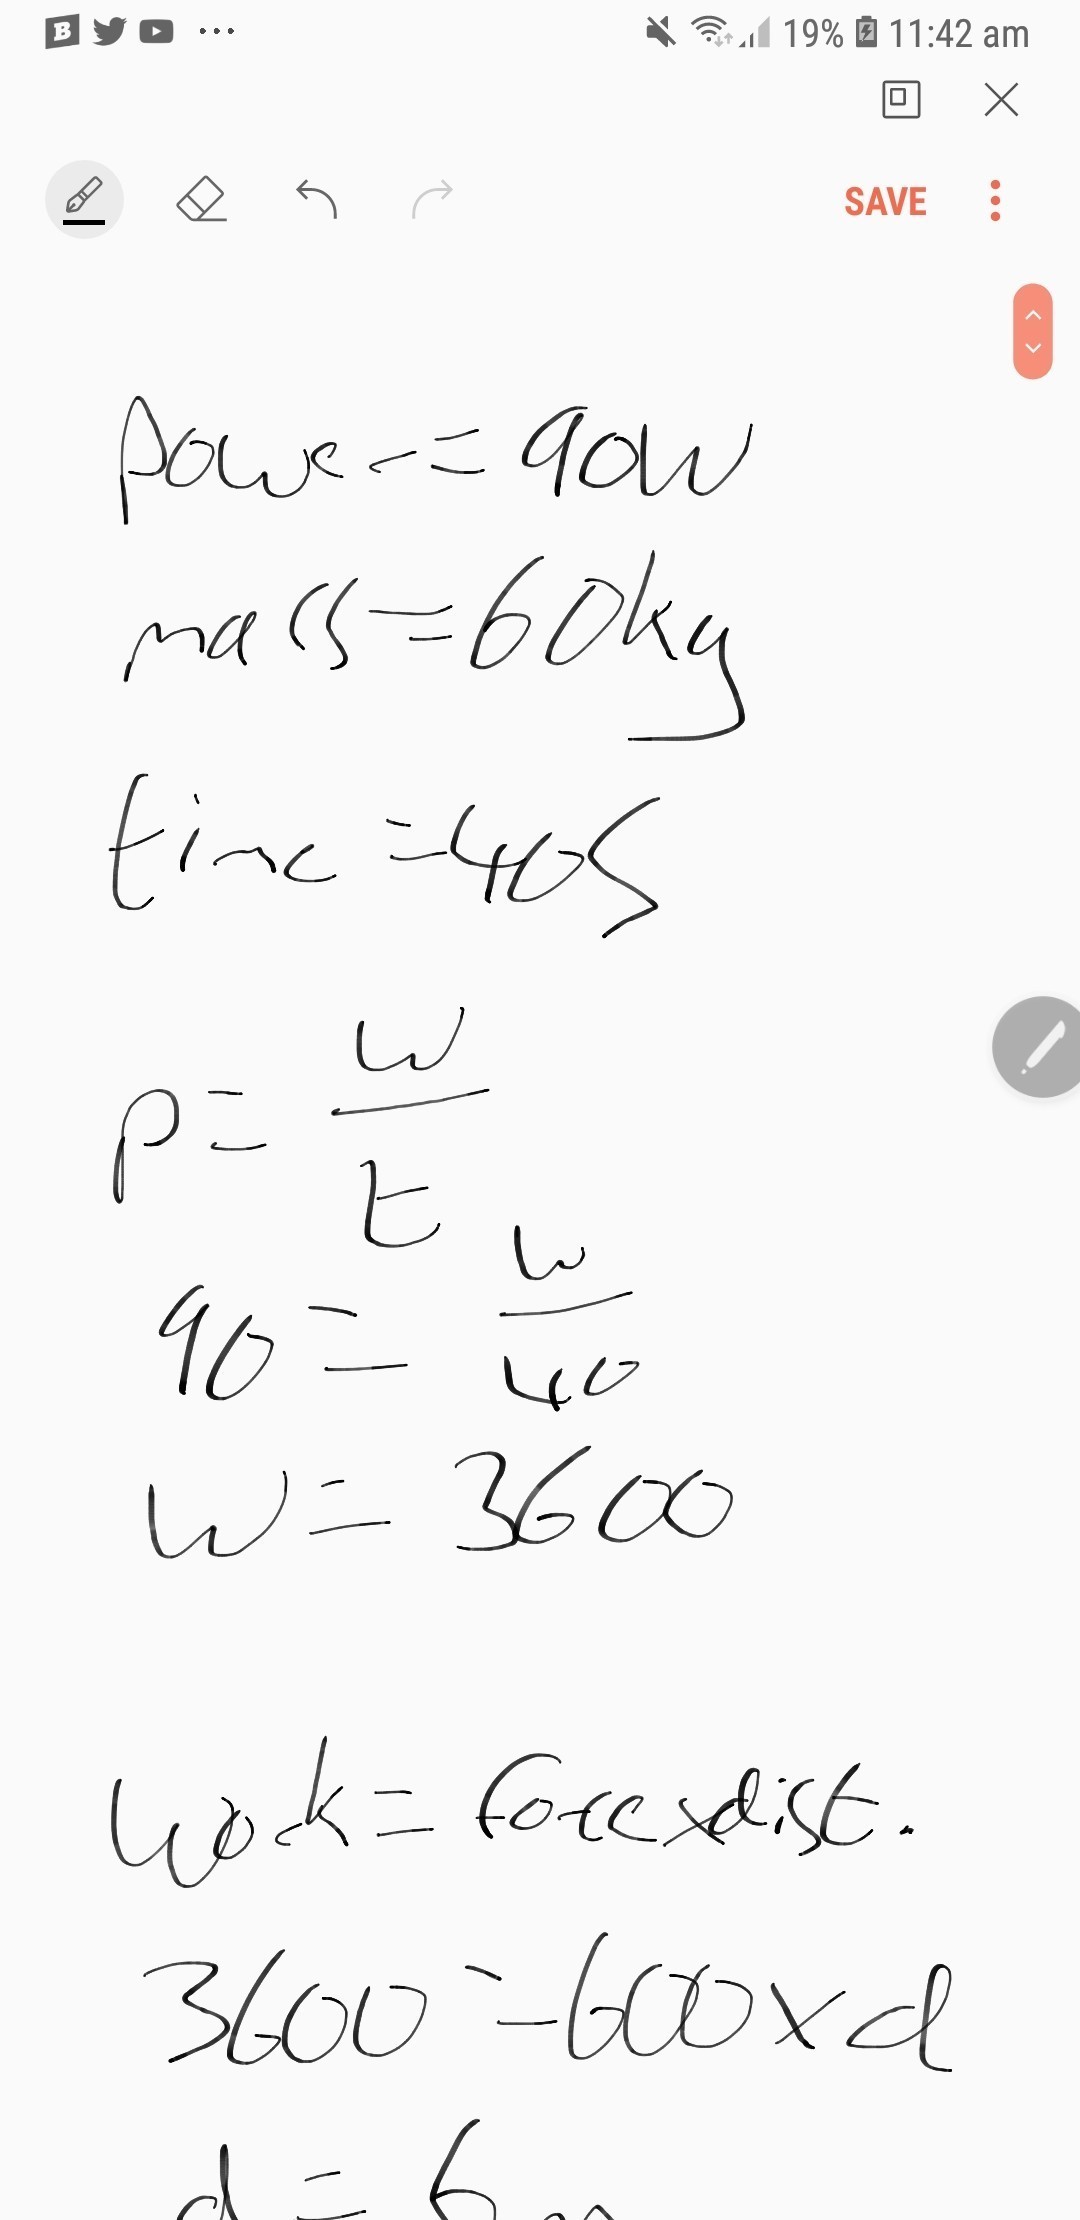 19% 11:42 am
SAVE
Power = 90W
mass = 60kg
time = 40s
P = W
t
90 = W
40
W = 3600
Work = force x dist.
3600 = 600 x d
d = 6m